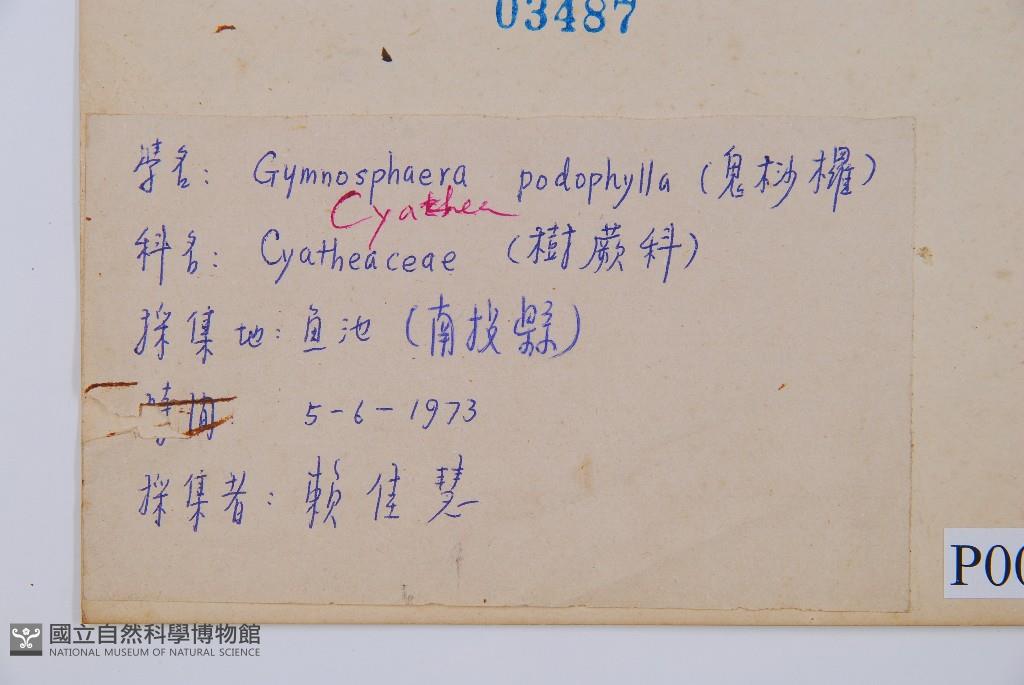 03487
學名: Gymnosphaera podophylla (鬼桫欏)
Cyathea
科名: Cyatheaceae (樹蕨科)
採集地: 魚池 (南投縣)
時間: 5-6-1973
採集者: 賴佳慧
P00
國立自然科學博物館
NATIONAL MUSEUM OF NATURAL SCIENCE